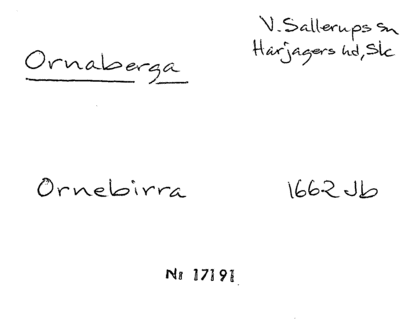 V. Sallerups sn
Harjagers hd, Sk
Ornaberga
Ornebirra 1662 Jb
Nr 17191